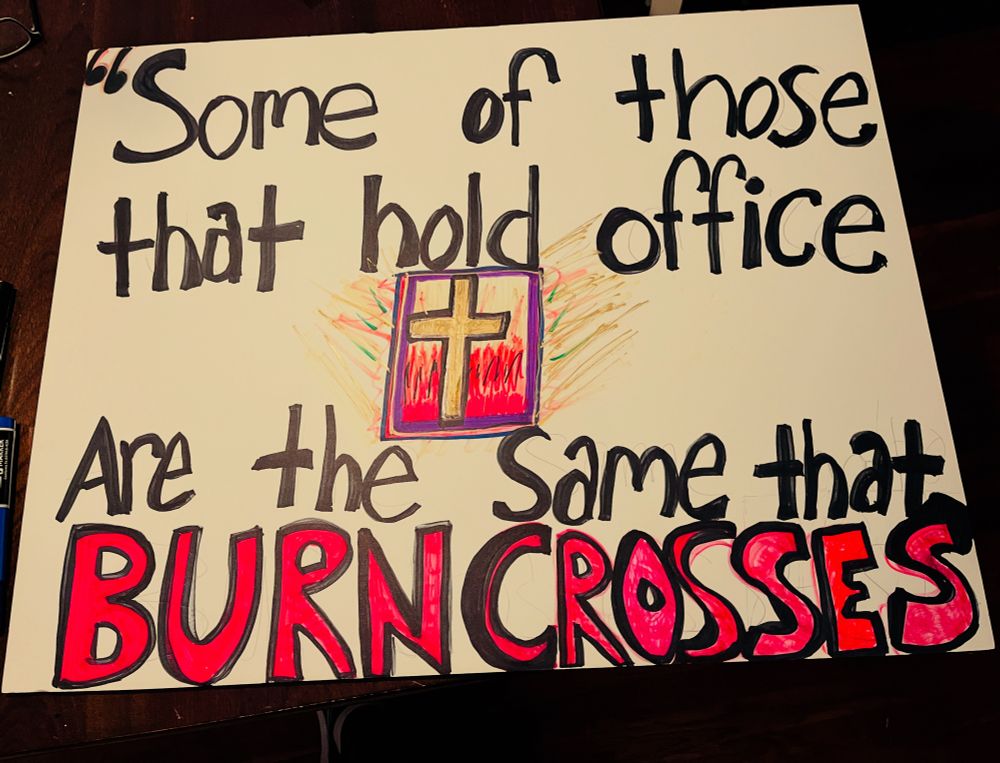 “Some of those
that hold office
Are the Same that
BURN CROSSES